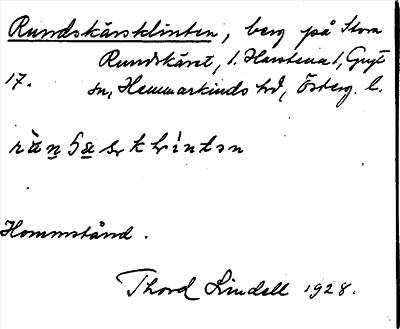 Rundskärsklinten, berg på Stora
Rundskäret, 1. Harstena 1, Gryt
17. sn, Hammarkinds hd, Österg. l.
Hommstånd.
Thord Lindell 1928.